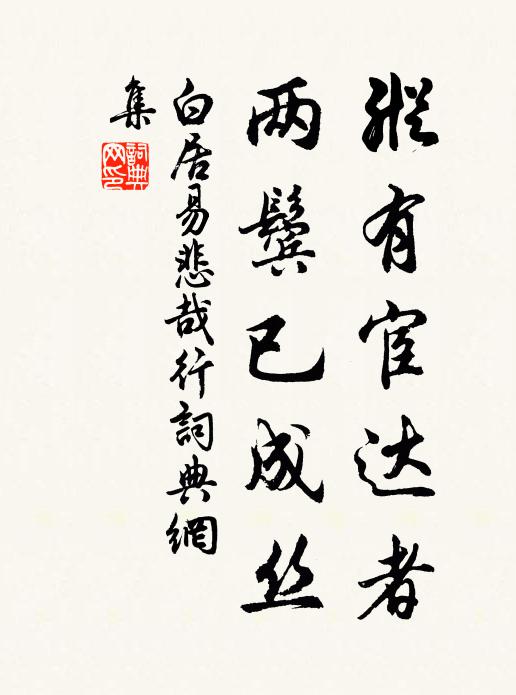 纵有宦达者
两鬓已成丝
白居易悲哉行词典網
集
詞典网印